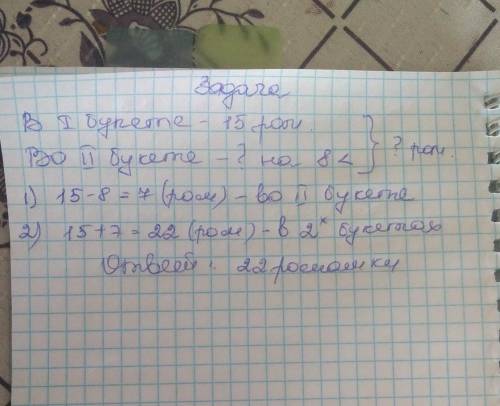 Задача
В I букете - 15 ром.
Во II букете - ? на 8 < } ? ром.
1) 15-8=7 (ром) - во II букете
2) 15+7=22 (ром) - в 2х букетах
Ответ: 22 ромашки